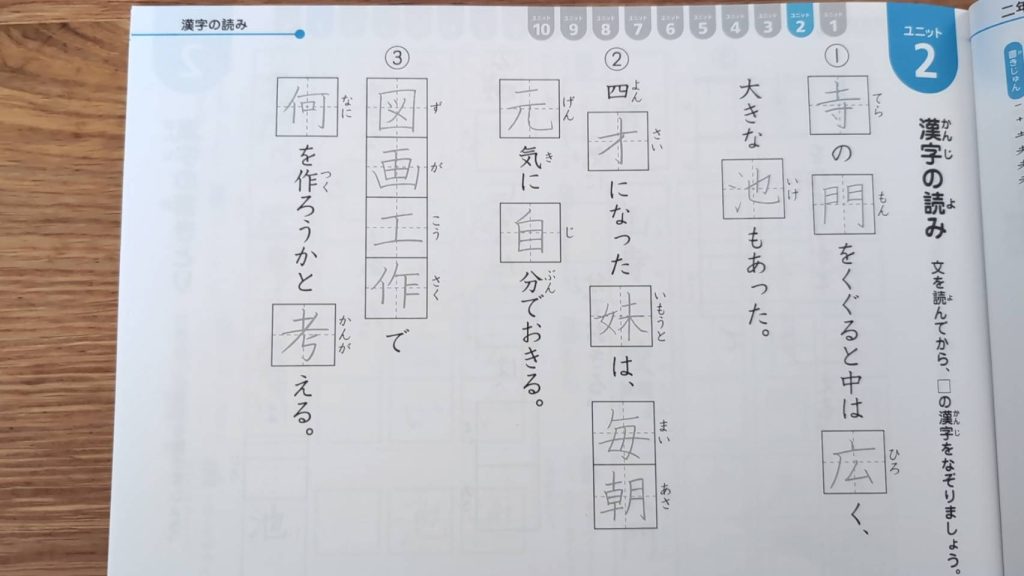 漢字の読み
ユニット 10
ユニット 9
ユニット 8
ユニット 7
ユニット 6
ユニット 5
ユニット 4
ユニット 3
ユニット 2
ユニット 1
ユニット 2
漢字の読み
かんじ
よ
文を読んでから、□の漢字をなぞりましょう。
よ
かんじ
①
寺の門をくぐると中は広く、
てら
もん
ひろ
大きな池もあった。
いけ
②
四才になった妹は、毎朝
よん
さい
いもうと
まい
あさ
元気に自分でおきる。
げん
き
じ
ぶん
③
図画工作で
ず
が
こう
さく
何を作ろうかと考える。
なに
つく
かんが
二年
書きじゅん